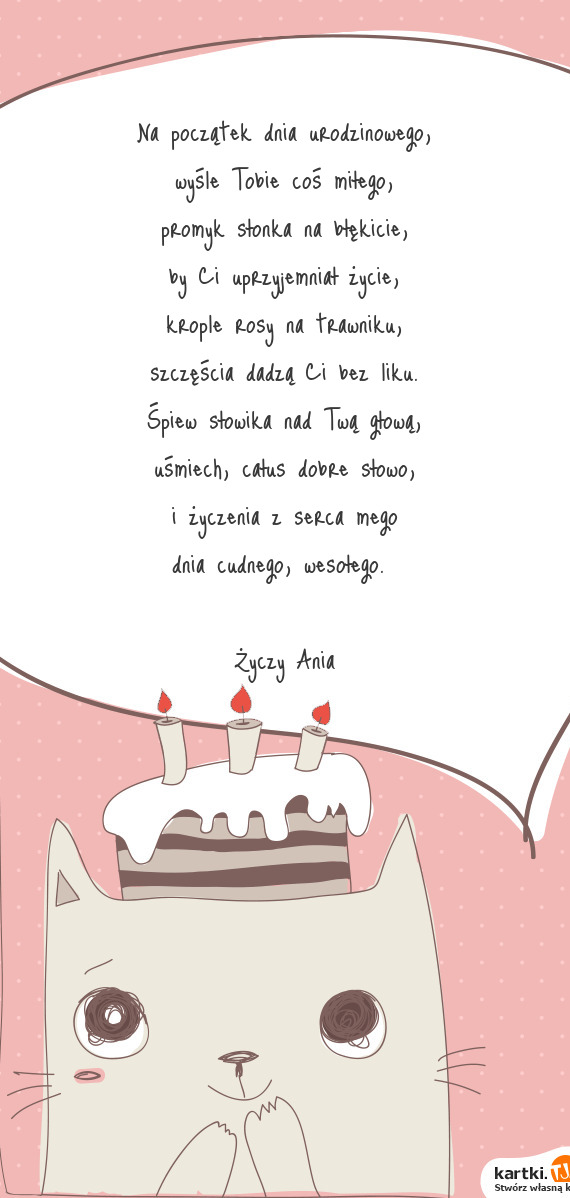 Na początek dnia urodzinowego,
wyśle Tobie coś miłego,
promyk słonka na błękicie,
by Ci uprzyjemniał życie,
krople rosy na trawniku,
szczęścia dadzą Ci bez liku.
Śpiew słowika nad Twą głową,
uśmiech, całus dobre słowo,
i życzenia z serca mego
dnia cudnego, wesołego.
Życzy Ania
kartki.TJ
Stwórz własną k